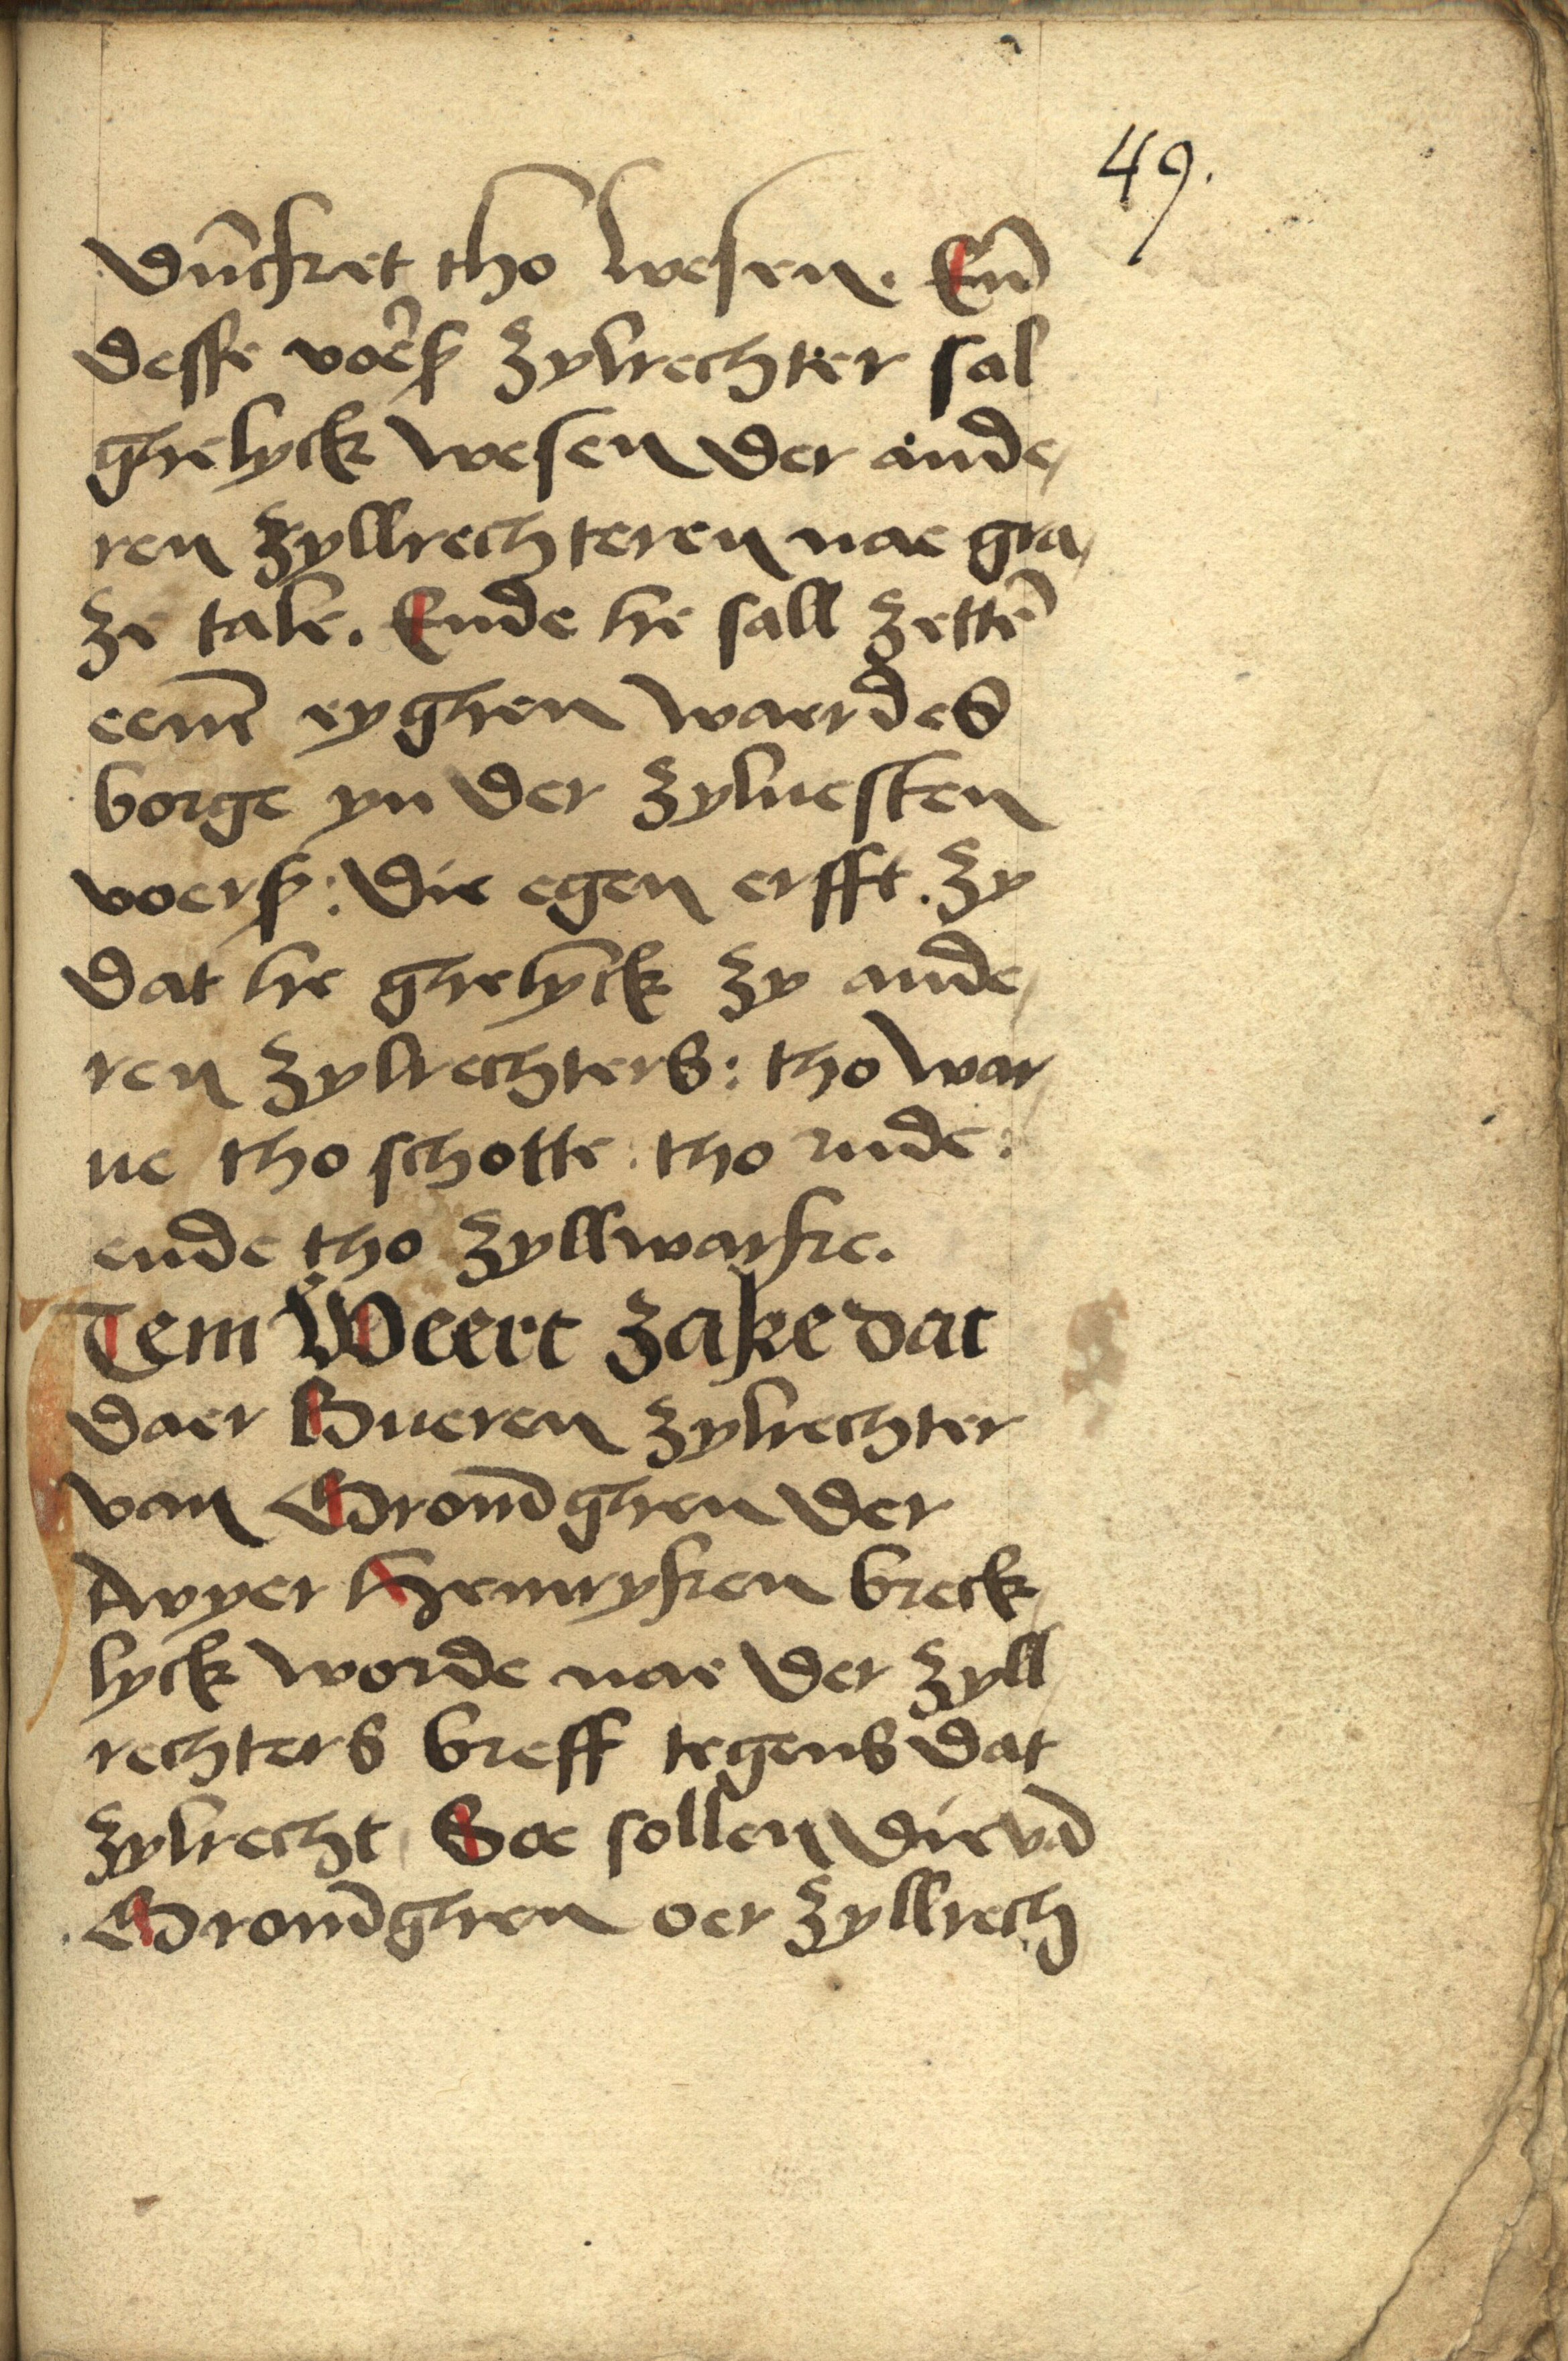 49.
vnͦcket tho wesen. En̄
desse voerß zylrechter sal
ghelyck wesen der ande,
ren zyllrechteren nae gra,
ze tale. Ende he sall zettē
eenē eyghen waerdes
borge yn der zyluesten
voerß: die egen erfft. zy
dat he ghelyck zy ande,
ren zylrechters: tho war,
ue tho schotte: tho ende:
ende tho zyllwarke.
Item Weert zake dat
daer Bueren zylrechter
van Gronīghen der
Auyer Henryken breck,
lyck worde nae der zyll,
rechters breff tegens dat
zylrecht, Soe sollen die vā
Gronīghen oer zyllrech